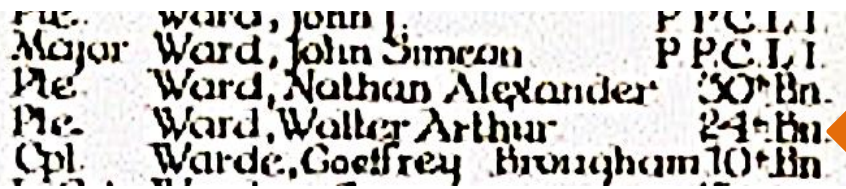 Pte. Ward, John J. P.P.C.L.I.
Major Ward, John Simeon P.P.C.L.I.
Pte. Ward, Nathan Alexander 50th Bn.
Pte. Ward, Walter Arthur 24th Bn.
Cpl. Warde, Geoffrey Brougham 10th Bn.